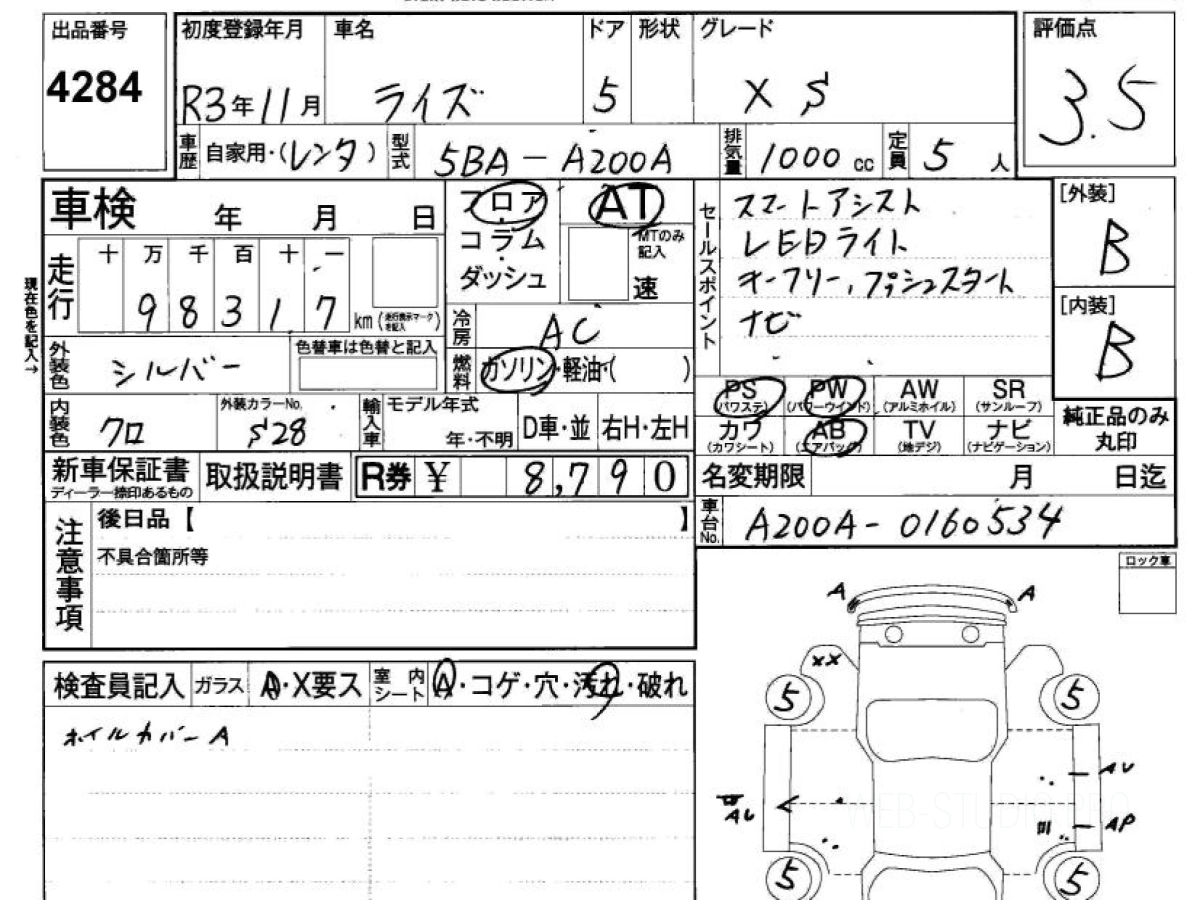 出品番号 初度登録年月 車名 ドア 形状 グレード 評価点
4284 R3年11月 ライズ 5 X S 3.5
車歴 自家用・(レンタ) 型式 5BA-A200A 排気量 1000 cc 定員 5 人
車検 年 月 日
フロア
コラム
ダッシュ
AT
MTのみ記入
速
セールスポイント
スマートアシスト
LEDライト
キーフリー、プッシュスタート
ナビ
[外装]
B
[内装]
B
現在色を記入→
走行 十 万 千 百 十 一
9 8 3 1 7 km (走行表示マークを記入)
冷房 AC
外装色 シルバー 色替車は色替と記入
燃料 ガソリン・軽油・( )
PS (パワステ) PW (パワーウインド) AW (アルミホイル) SR (サンルーフ)
カワ (カワシート) AB (エアバック) TV (地デジ) ナビ (ナビゲーション)
純正品のみ丸印
内装色 クロ 外装カラーNo. S28 輸入車 モデル年式 年・不明 D車・並 右H・左H
新車保証書 ディーラー捺印あるもの 取扱説明書 R券 ¥ 8,790
名変期限 月 日迄
車台No. A200A-0160534
注意事項 後日品【 】
不具合箇所等
ロック車
検査員記入 ガラス A・X要ス 室内シート A・コゲ・穴・汚れ・破れ
ホイルカバーA
A A
XX
5 5
AU
AU
AP
5 5
WEB-STUDIO.PRO